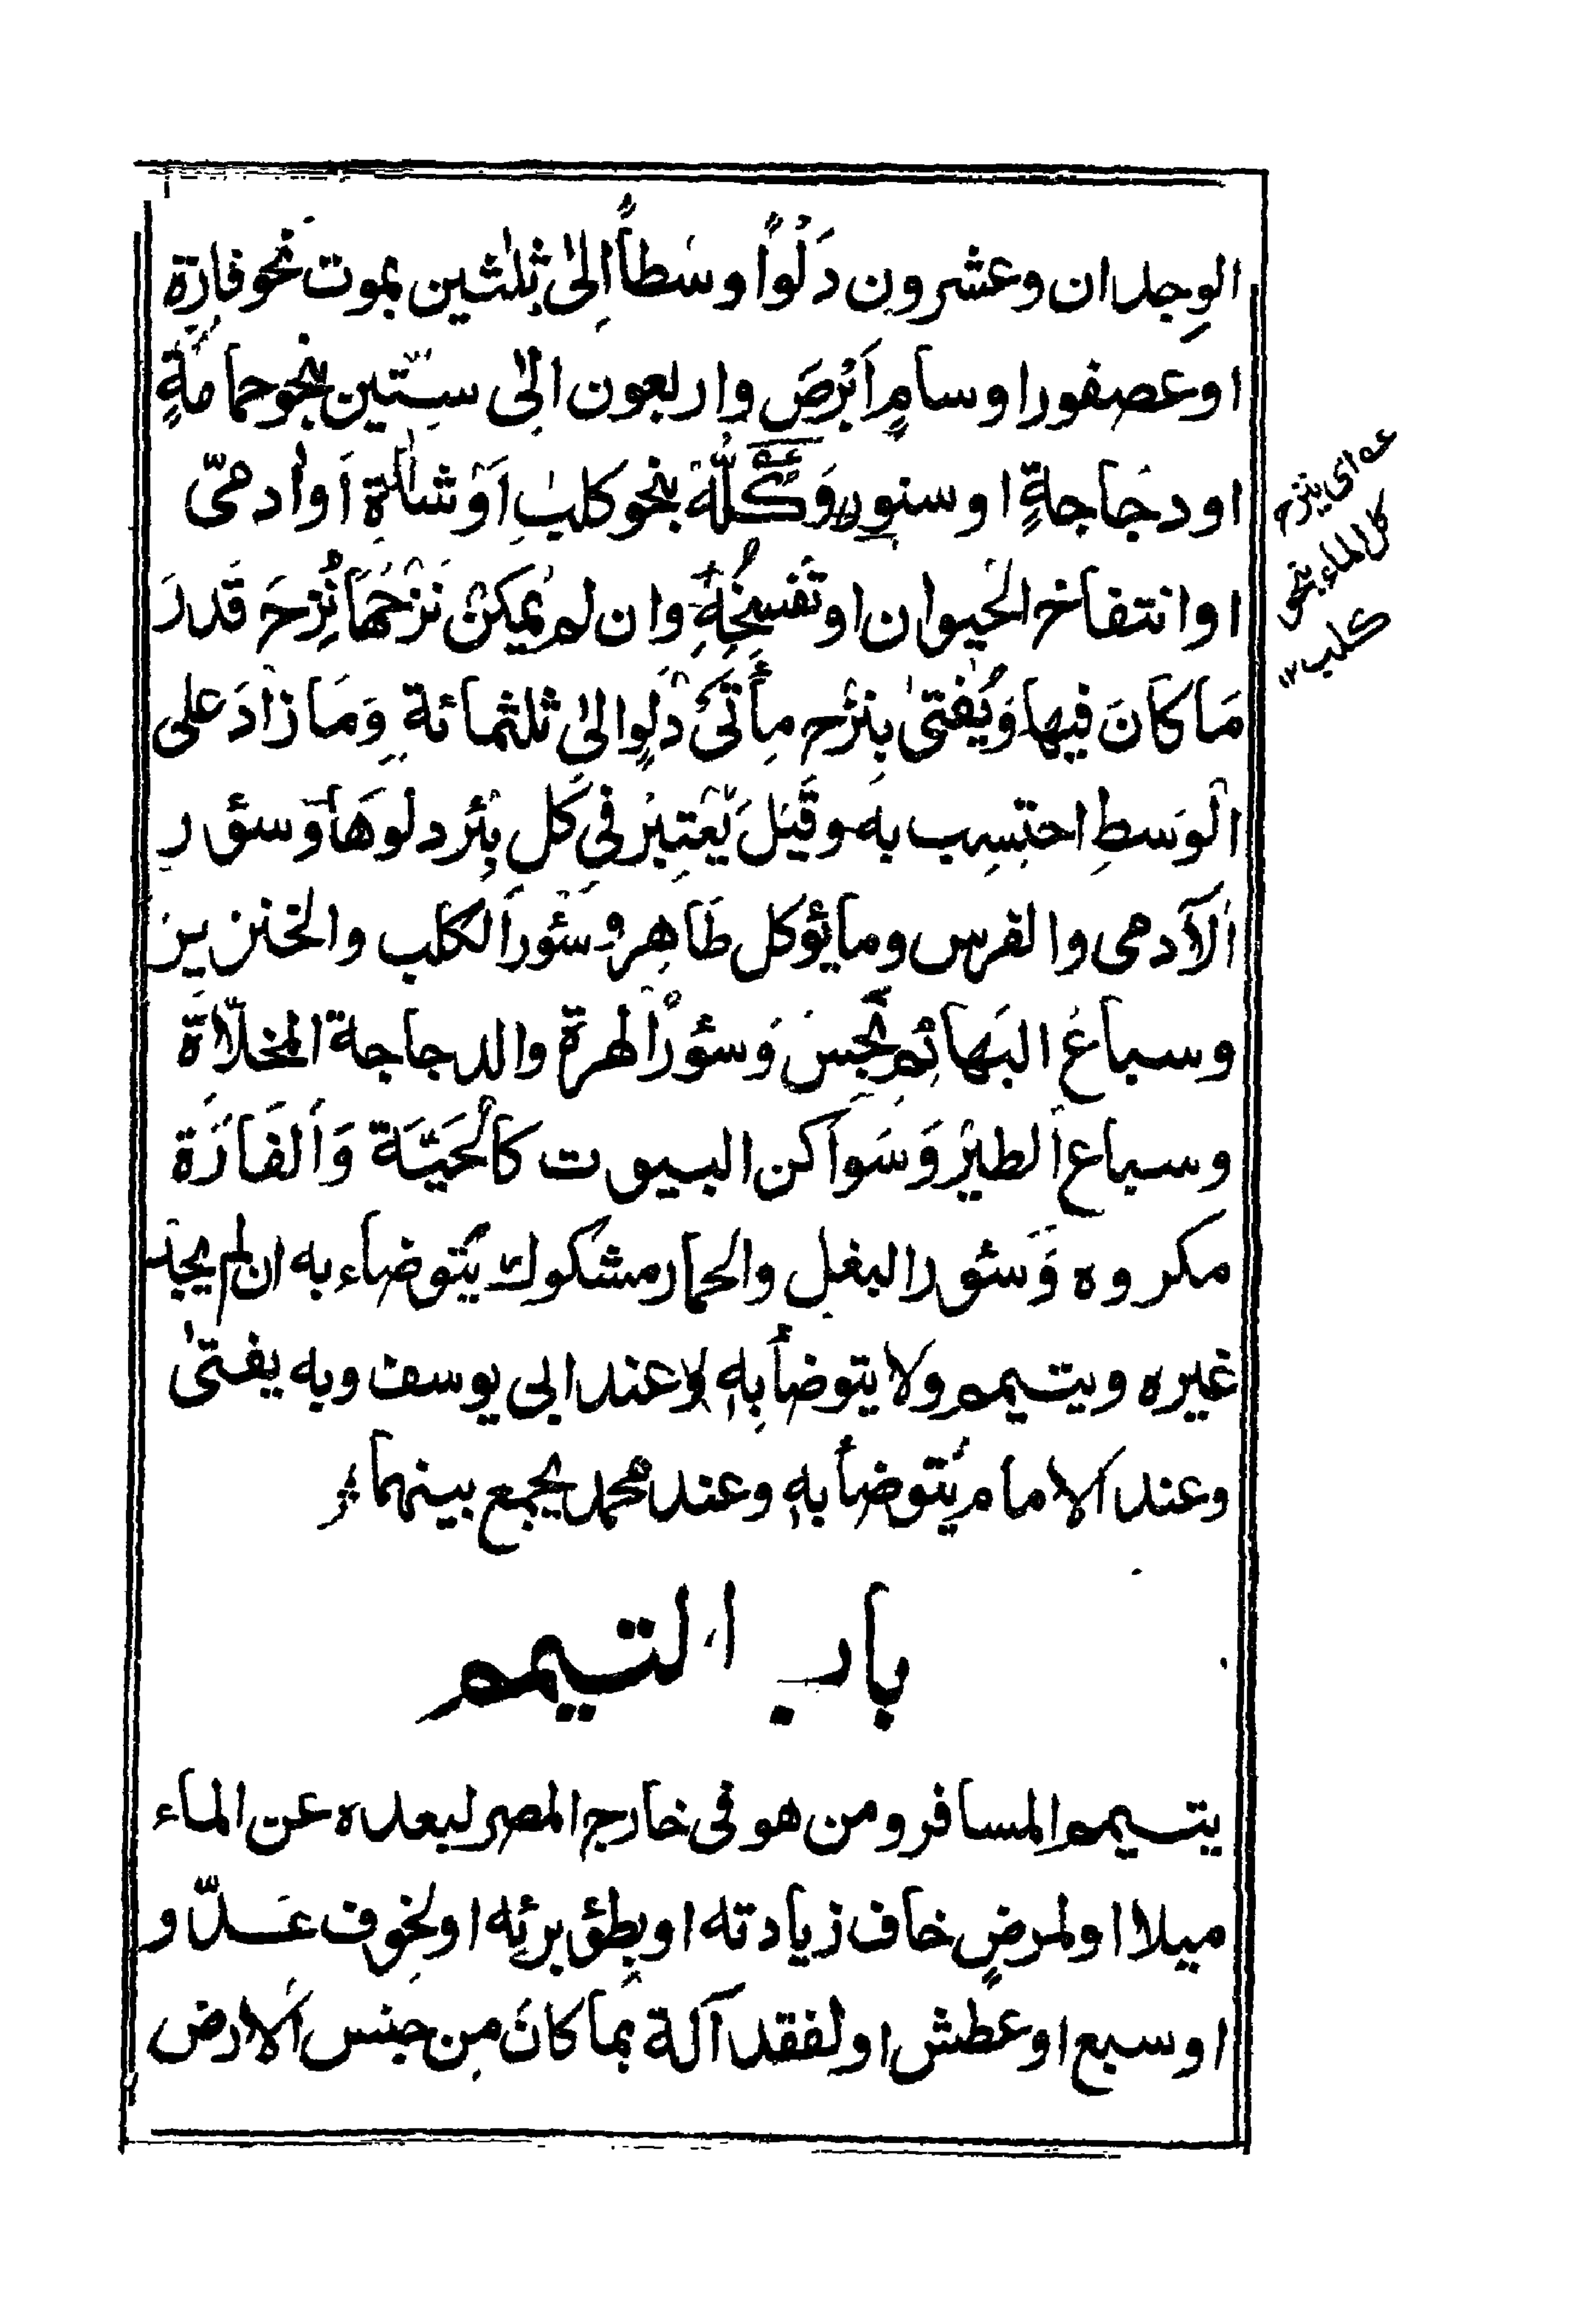 الوجدان وعشرون دَلْوًا وسَطاً اِلىٰ ثلٰثين بموت نحو فارَة
او عصفور او سامٍ اَبْرَصَ واربعون اِلىٰ سِتّين بنحو حمامَةٍ
او دجَاجةٍ او سنورٍ وَكُلَّهُ بنحو كلبٍ اَوْ شاةٍ اَو اٰدمىّ
او انتفاخ الحَيوان او تفسخُهِ وان لم يُمكِنْ نَزحُهَا نُزِحَ قَدرَ
مَا كَانَ فيها وَيُفتىٰ بِنزْحِ مِأتَىْ دَلوٍ الىٰ ثلثمائة وَمَا زادَ على
الْوَسطِ احتسِب به وقَيْلَ يُعْتبرُ فى كَلِ بِئر دلوهَا وَسؤر
اَلآدمى والفرس وما يؤكل طَاهِر وسُؤر اَلكلب والخنزير
وسباعُ البَهائمِ نَجِسَ وَسؤرُ الهرة والدجاجة المخلّاة
وسباع الطَيْر وَسَواكن البيوت كَالْحَيّةَ وَاَلفَارَة
مكروه وَسئور البغل والحمار مشكوك يُتوضاء به ان لم يجدْ
غيره ويتيمم ولا يتوضأ بِهِ لا عند ابى يوسف وبه يفتىٰ
وعند الامام يُتوضأ بهٖ وعند محمد يجمع بينهما
باب التيمم
يتيمم المسافر ومن هو فى خارج المصر لبعده عن الماء
ميلا او لمرضٍ خاف زيادته او بطؤ برئه او لخوف عدّو
او سبع او عطش او لفقد آلة بما كانَ مِن جنس الارض
عه اى ينزح
كل الماء بنحو
كلب ١٢